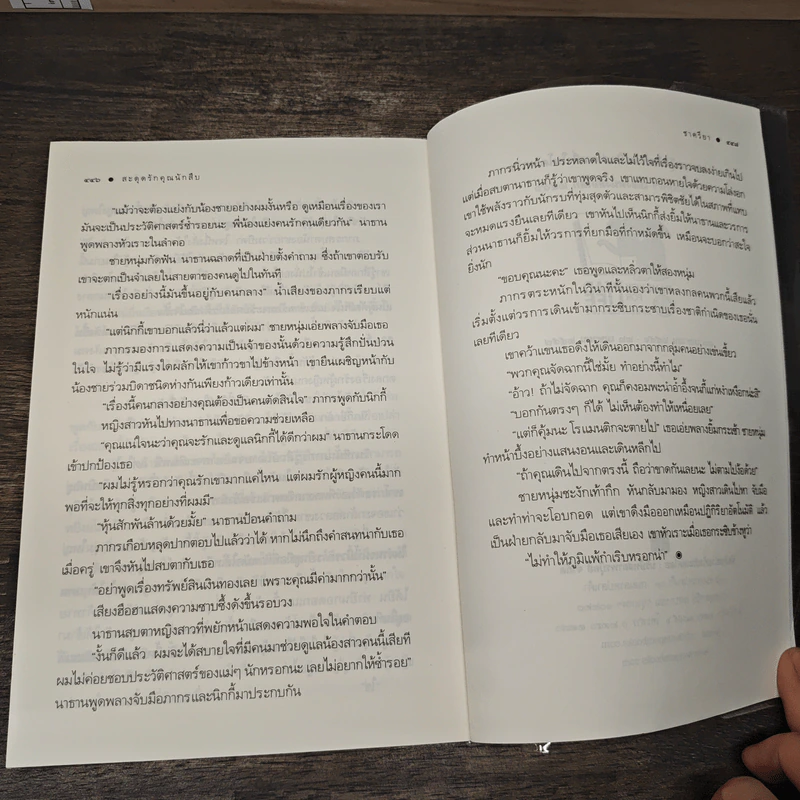 ๔๔๖ ● สะดุดรักคุณนักสืบ
"แม้ว่าจะต้องแย่งกับน้องชายอย่างผมงั้นหรือ ดูเหมือนเรื่องของเรา
มันจะเป็นประวัติศาสตร์ซ้ำรอยนะ พี่น้องแย่งคนรักคนเดียวกัน" นาธาน
พูดพลางหัวเราะในลำคอ
ชายหนุ่มกัดฟัน นาธานฉลาดที่เป็นฝ่ายตั้งคำถาม ซึ่งถ้าเขาตอบรับ
เขาจะตกเป็นจำเลยในสายตาของคนดูไปในทันที
"เรื่องอย่างนี้มันขึ้นอยู่กับคนกลาง" น้ำเสียงของภากรเรียบแต่
หนักแน่น
"แต่นิกกี้เขาบอกแล้วนี่ว่าแล้วแต่ผม" ชายหนุ่มเอ่ยพลางจับมือเธอ
ภากรมองการแสดงความเป็นเจ้าของนั้นด้วยความรู้สึกปั่นป่วน
ในใจ ไม่รู้ว่ามีแรงใดผลักให้เขาก้าวขาไปข้างหน้า เขายืนเผชิญหน้ากับ
น้องชายร่วมบิดาชนิดห่างกันเพียงก้าวเดียวเท่านั้น
"เรื่องนี้คนกลางอย่างคุณต้องเป็นคนตัดสินใจ" ภากรพูดกับนิกกี้
หญิงสาวหันไปทางนาธานเพื่อขอความช่วยเหลือ
"คุณแน่ใจนะว่าคุณจะรักและดูแลนิกกี้ได้ดีกว่าผม" นาธานกระโดด
เข้าปกป้องเธอ
"ผมไม่รู้หรอกว่าคุณรักเขามากแค่ไหน แต่ผมรักผู้หญิงคนนี้มาก
พอที่จะให้ทุกสิ่งทุกอย่างที่ผมมี"
"หุ้นสักพันล้านด้วยมั้ย" นาธานป้อนคำถาม
ภากรเกือบหลุดปากตอบไปแล้วว่าได้ หากไม่นึกถึงคำสนทนากับเธอ
เมื่อครู่ เขาจึงหันไปสบตากับเธอ
"อย่าพูดเรื่องทรัพย์สินเงินทองเลย เพราะคุณมีค่ามากกว่านั้น"
เสียงฮือฮาแสดงความซาบซึ้งดังขึ้นรอบวง
นาธานสบตาหญิงสาวที่พยักหน้าแสดงความพอใจในคำตอบ
"งั้นก็ดีแล้ว ผมจะได้สบายใจที่มีคนมาช่วยดูแลน้องสาวคนนี้เสียที
ผมไม่ค่อยชอบประวัติศาสตร์ของแม่ๆ นักหรอกนะ เลยไม่อยากให้ซ้ำรอย"
นาธานพูดพลางจับมือภากรและนิกกี้มาประกบกัน
ชาครียา ●
ภากรนิ่วหน้า ประหลาดใจและไม่ไว้ใจที่เรื่องราวจบลงง่ายเกินไป
แต่เมื่อสบตานาธานก็รู้ว่าเขาพูดจริง เขาแทบถอนหายใจด้วยความโล่งอก
เขาใช้พลังราวกับนักรบที่ทุ่มสุดตัวและสามารถพิชิตชัยได้ในสภาพที่แทบ
จะหมดแรงยืนเลยทีเดียว เขาหันไปเห็นนิกกี้ส่งยิ้มให้นาธานและวรการ
ส่วนนาธานก็ยิ้มให้วรการที่ยกมือที่กำหมัดขึ้น เหมือนจะบอกว่าสะใจ
ยิ่งนัก
"ขอบคุณนะคะ" เธอพูดและหลิ่วตาให้สองหนุ่ม
ภากรตระหนักในวินาทีนั้นเองว่าเขาหลงกลคนพวกนี้เสียแล้ว
เริ่มตั้งแต่วรการเดินเข้ามากระซิบกระซาบเรื่องชาติกำเนิดของเธอนั่น
เลยทีเดียว
เขาคว้าแขนเธอดึงให้เดินออกมาจากกลุ่มคนอย่างเข่นเขี้ยว
"พวกคุณจัดฉากนี้ใช่มั้ย ทำอย่างนี้ทำไม"
"อ้าว! ถ้าไม่จัดฉาก คุณก็คงอมพะนำอ้ำอึ้งจนกี้แก่หง่าเหงือกน่ะสิ"
"บอกกันตรงๆ ก็ได้ ไม่เห็นต้องทำให้เหนื่อยเลย"
"แต่ก็คุ้มนะ โรแมนติกจะตายไป" เธอเอ่ยพลางยิ้มกระเซ้า ชายหนุ่ม
ทำหน้าบึ้งอย่างแสนงอนและเดินหลีกไป
"ถ้าคุณเดินไปจากตรงนี้ ถือว่าขาดกันเลยนะ ไม่ตามไปง้อด้วย"
ชายหนุ่มชะงักเท้ากึก หันกลับมามอง หญิงสาวเดินไปหา จับมือ
และทำท่าจะโอบกอด แต่เขาดึงมือออกเหมือนปฏิกิริยาอัตโนมัติ แล้ว
เป็นฝ่ายกลับมาจับมือเธอเสียเอง เขาหัวเราะเมื่อเธอกระซิบข้างหูว่า
"ไม่ทำให้ภูมิแพ้กำเริบหรอกน่า" ◉